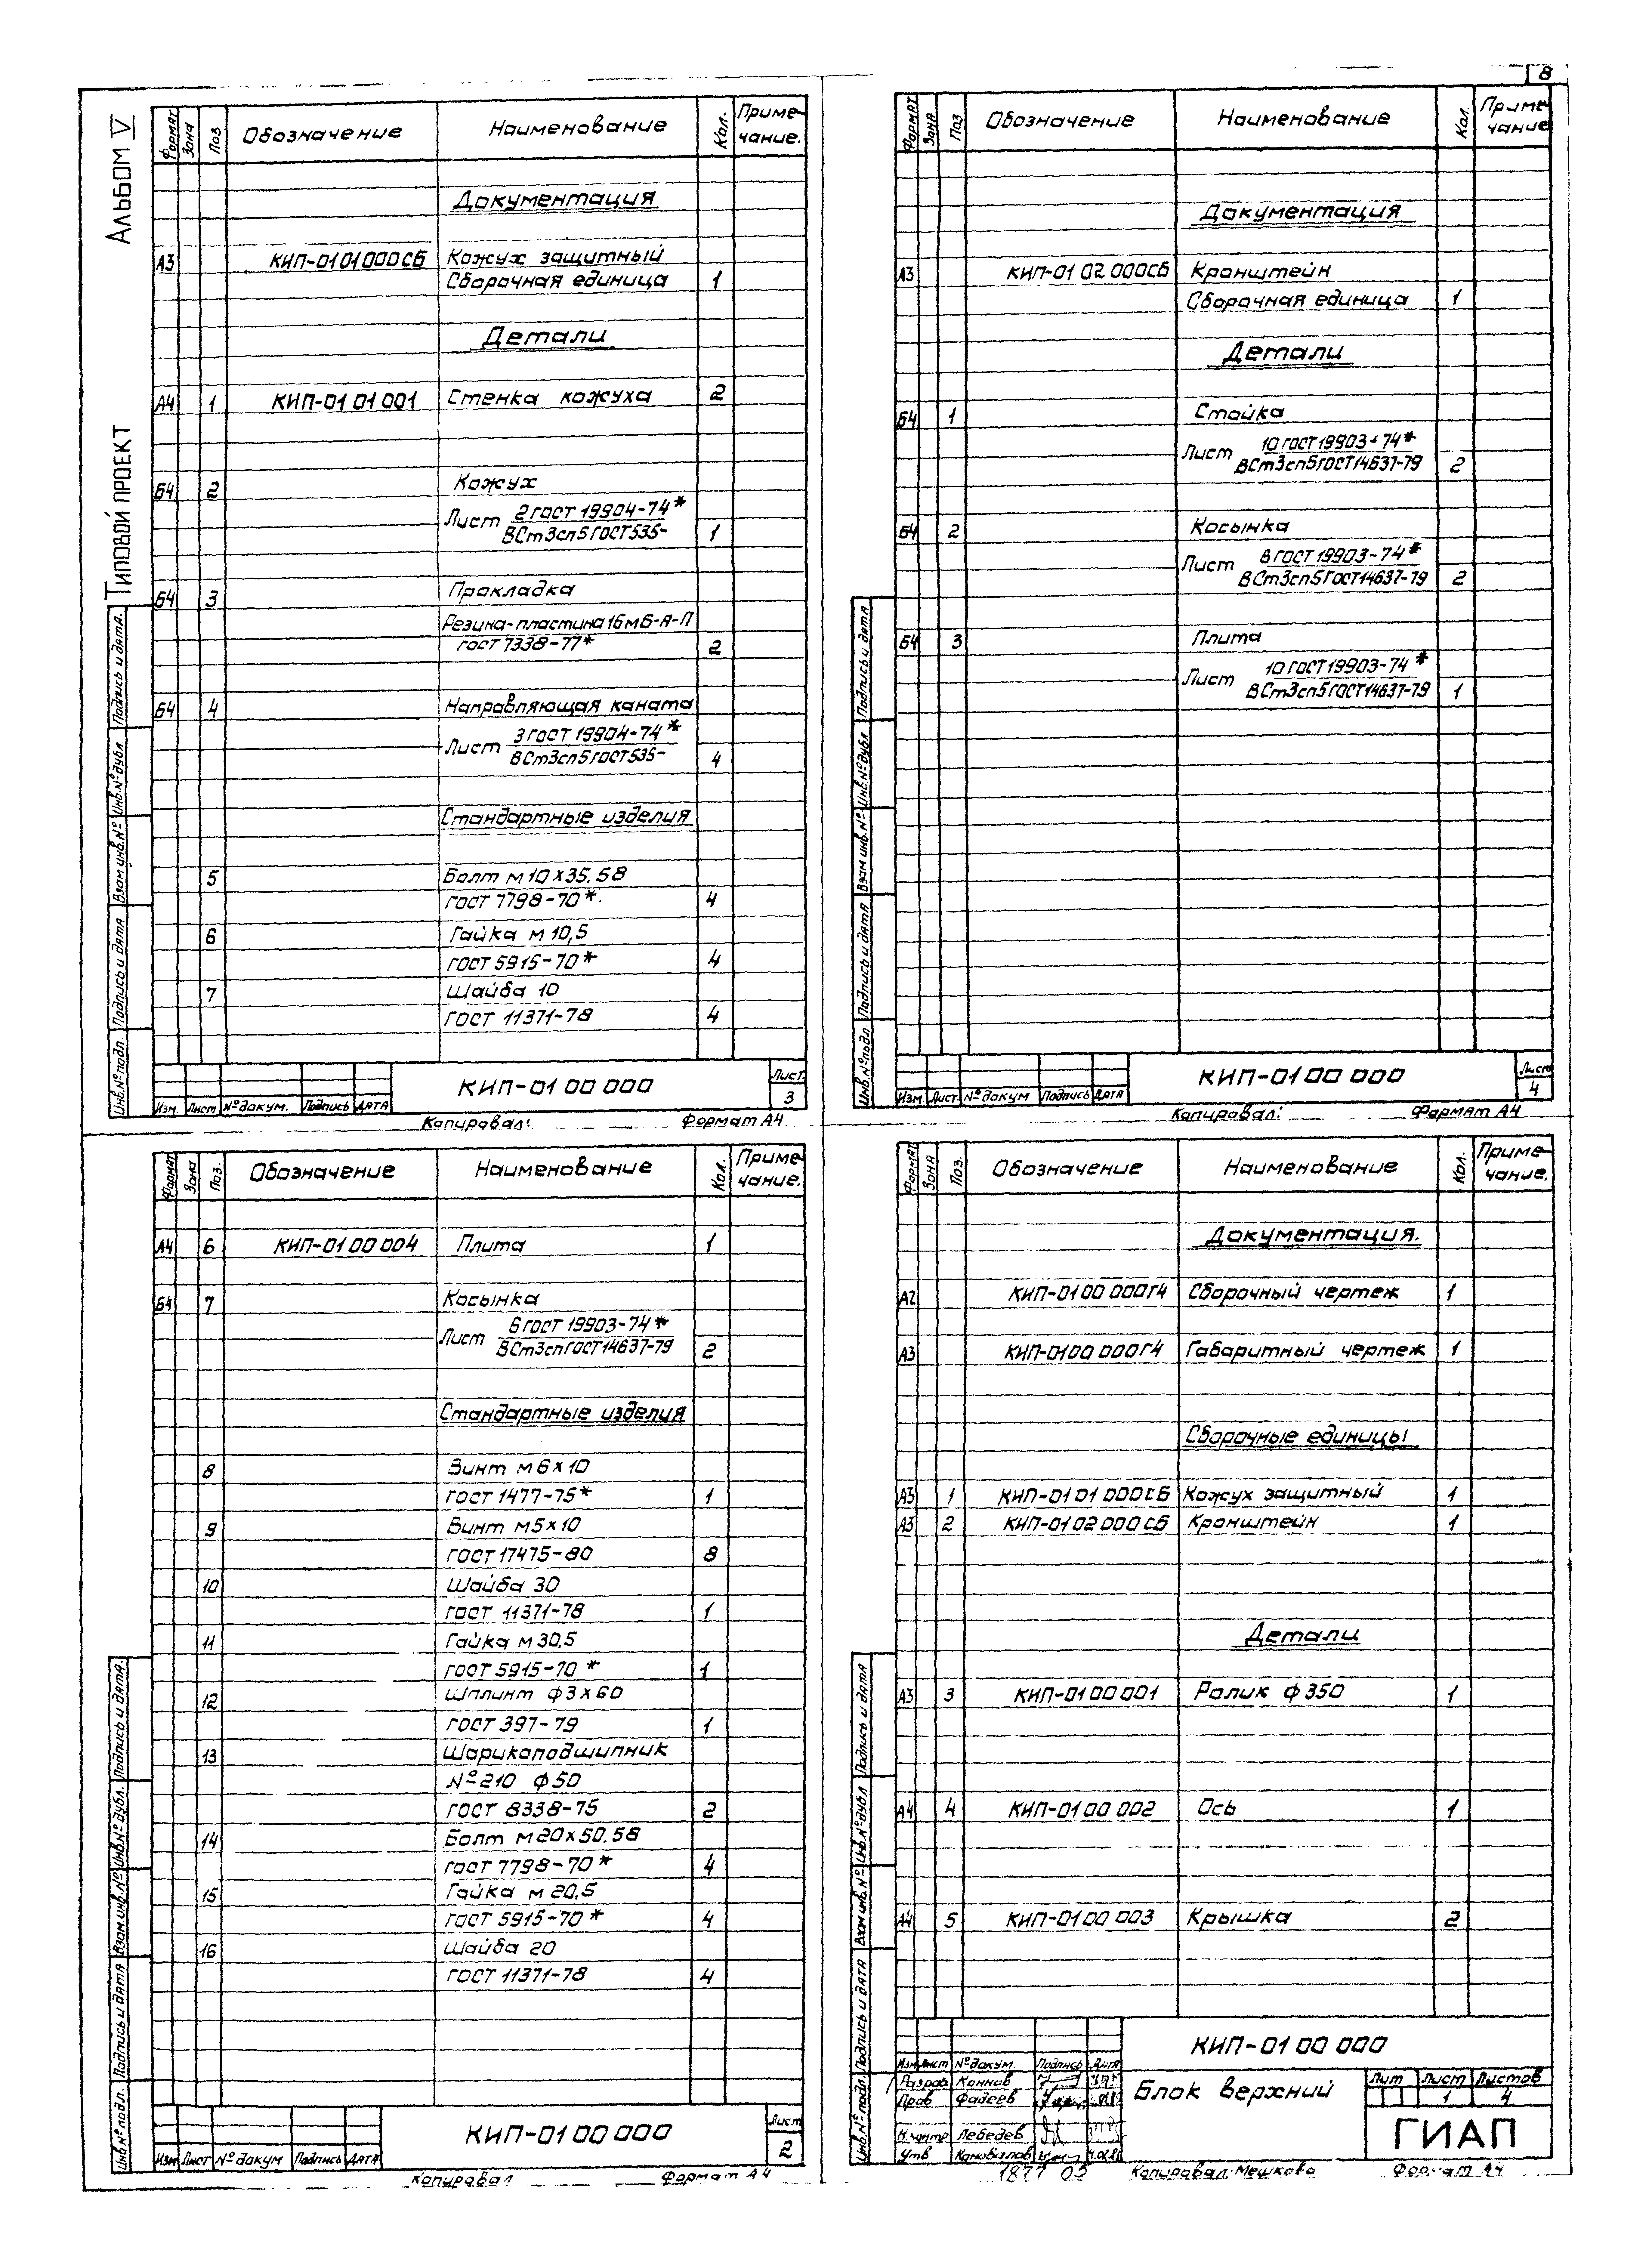 8
Альбом V
Типовой проект
Формат Зона Поз Обозначение Наименование Кол. Приме-
чание.
Документация
А3 КИП-01 01 000СБ Кожух защитный
Сборочная единица 1
Детали
А4 1 КИП-01 01 001 Стенка кожуха 2
Б4 2 Кожух
Лист 2 ГОСТ 19904-74*
ВСт3сп5 ГОСТ 535- 1
Б4 3 Прокладка
Резина-пластина 16мБ-А-П
ГОСТ 7338-77* 2
Б4 4 Направляющая каната
Лист 3 ГОСТ 19904-74*
ВСт3сп5 ГОСТ 535- 4
Стандартные изделия
5 Болт м10х35.58
ГОСТ 7798-70*. 4
6 Гайка м 10,5
ГОСТ 5915-70* 4
7 Шайба 10
ГОСТ 11371-78 4
Инв.№подл. Подпись и дата Взам инв.№ Инв.№дубл Подпись и дата.
КИП-01 00 000 Лист.
3
Изм. Лист №докум. Подпись Дата
Копировал: Формат А4
Формат Зона Поз Обозначение Наименование Кол. Приме-
чание
Документация
А3 КИП-01 02 000СБ Кронштейн
Сборочная единица 1
Детали
Б4 1 Стойка
Лист 10 ГОСТ 19903-74*
ВСт3сп5 ГОСТ 14637-79 2
Б4 2 Косынка
Лист 8 ГОСТ 19903-74*
ВСт3сп5 ГОСТ 14637-79 2
Б4 3 Плита
Лист 10 ГОСТ 19903-74*
ВСт3сп5 ГОСТ 14637-79 1
Инв.№подл Подпись и дата Взам инв.№ Инв.№дубл Подпись и дата
КИП-01 00 000 Лист
4
Изм. Лист №докум Подпись Дата
Копировал: Формат А4
Формат Зона Поз. Обозначение Наименование Кол. Приме-
чание.
А4 6 КИП-01 00 004 Плита 1
Б4 7 Косынка
Лист 6 ГОСТ 19903-74*
ВСт3сп ГОСТ 14637-79 2
Стандартные изделия
8 Винт м6х10
ГОСТ 1477-75* 1
9 Винт м5х10
ГОСТ 17475-80 8
10 Шайба 30
ГОСТ 11371-78 1
11 Гайка м30,5
ГОСТ 5915-70* 1
12 Шплинт ф3х60
ГОСТ 397-79 1
13 Шарикоподшипник
№210 ф50
ГОСТ 8338-75 2
14 Болт м20х50.58
ГОСТ 7798-70* 4
15 Гайка м 20,5
ГОСТ 5915-70* 4
16 Шайба 20
ГОСТ 11371-78 4
Инв.№подл. Подпись и дата Взам.инв.№ Инв.№дубл. Подпись и дата.
КИП-01 00 000 Лист
2
Изм Лист №докум Подпись Дата
Копировал Формат А4
Формат Зона Поз. Обозначение Наименование Кол. Приме-
чание.
Документация.
А2 КИП-01 00 000Г4 Сборочный чертеж 1
А3 КИП-01 00 000Г4 Габаритный чертеж 1
Сборочные единицы
А3 1 КИП-01 01 000СБ Кожух защитный 1
А3 2 КИП-01 02 000СБ Кронштейн 1
Детали
А3 3 КИП-01 00 001 Ролик ф350 1
А4 4 КИП-01 00 002 Ось 1
А4 5 КИП-01 00 003 Крышка 2
Инв.№подл. Подпись и дата Взам инв.№ Инв.№дубл Подпись и дата
КИП-01 00 000
Изм Лист №докум. Подпись Дата
Разраб Коннов
Пров Фадеев
Н.контр Лебедев
Утв Коновалов
Блок верхний
Лит Лист Листов
1 4
ГИАП
1877 05 Копировал: Мешкова Формат А4